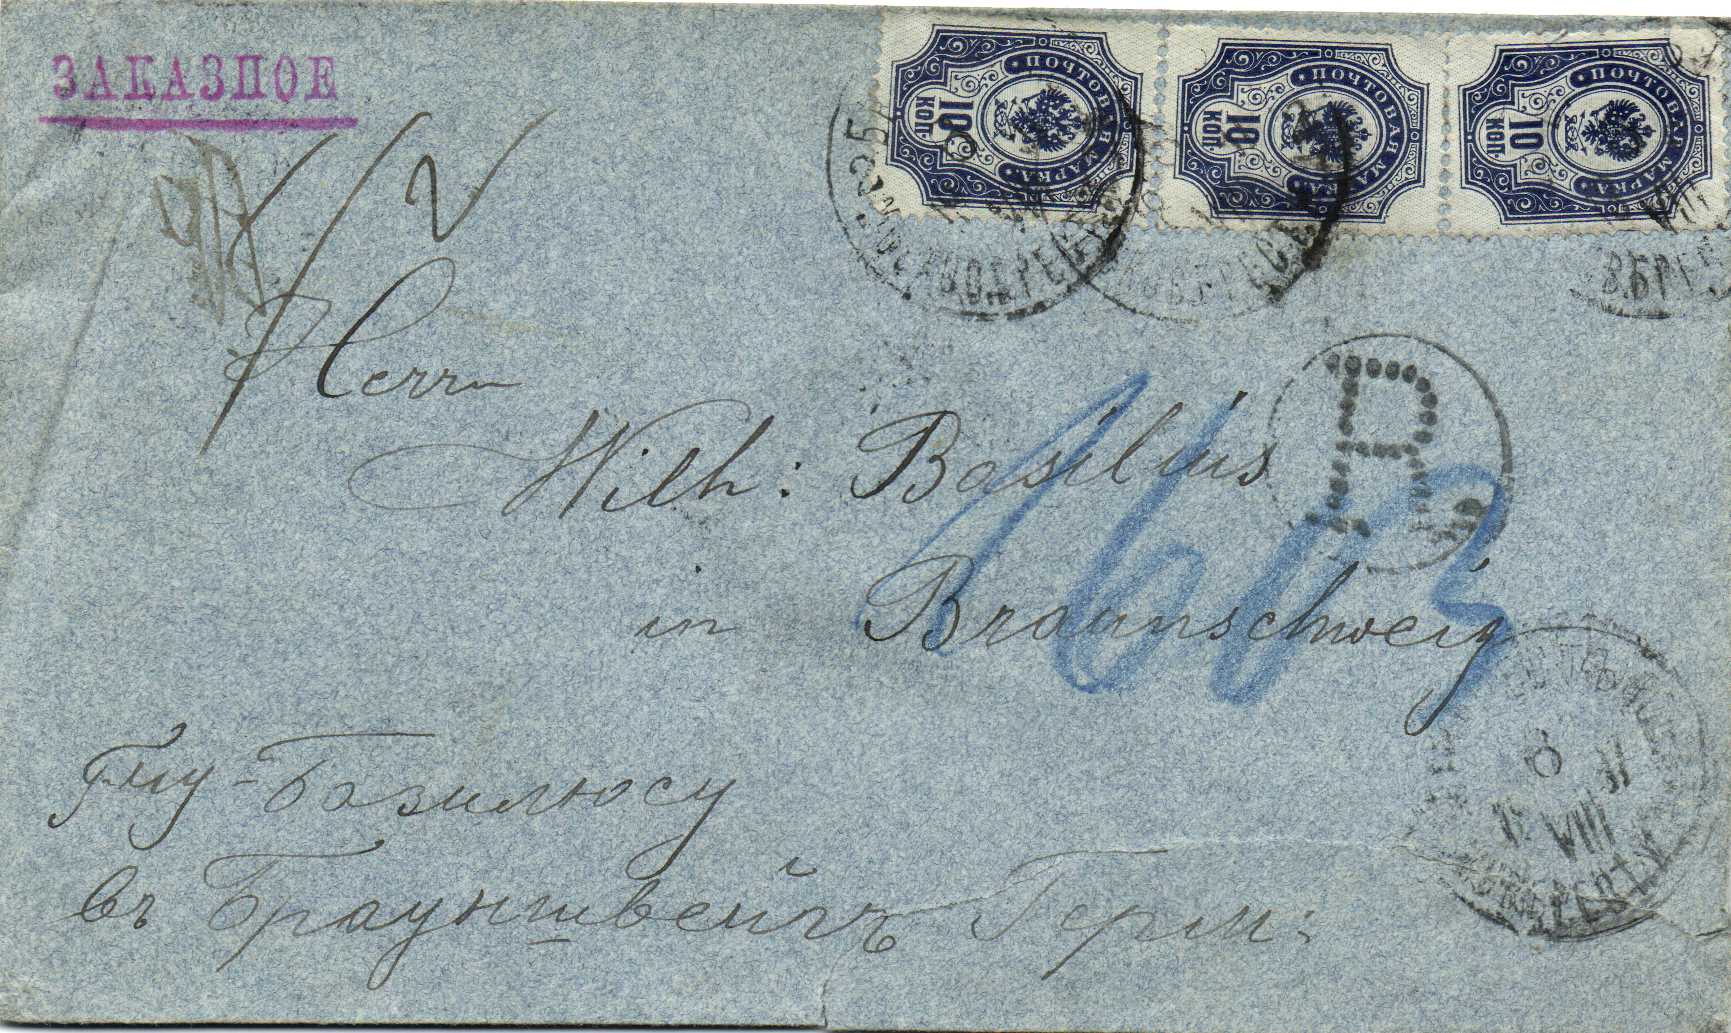 ЗАКАЗНОЕ
ПОЧТОВАЯ МАРКА
10 КОП.
ПОЧТОВАЯ МАРКА
10 КОП.
ПОЧТОВАЯ МАРКА
10 КОП.
R
Herrn
Wilh: Basilius
in Braunschweig
1603
VIII
Г-му Базилюсу
въ Брауншвейгъ Герм: